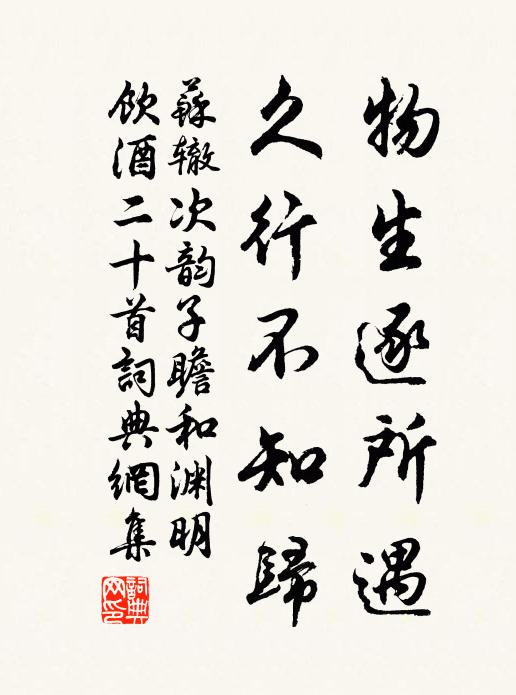 物生逐所遇
久行不知歸
蘇辙次韵子瞻和渊明
飲酒二十首詞典網集
詞典
网印